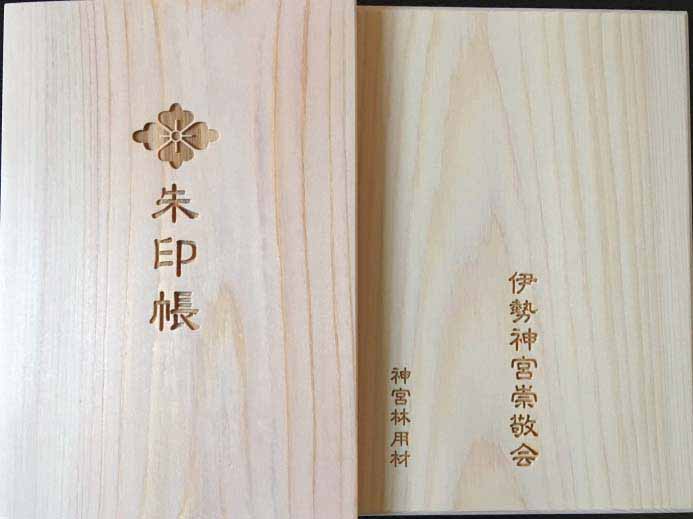 朱印帳
伊勢神宮崇敬会
神宮林用材